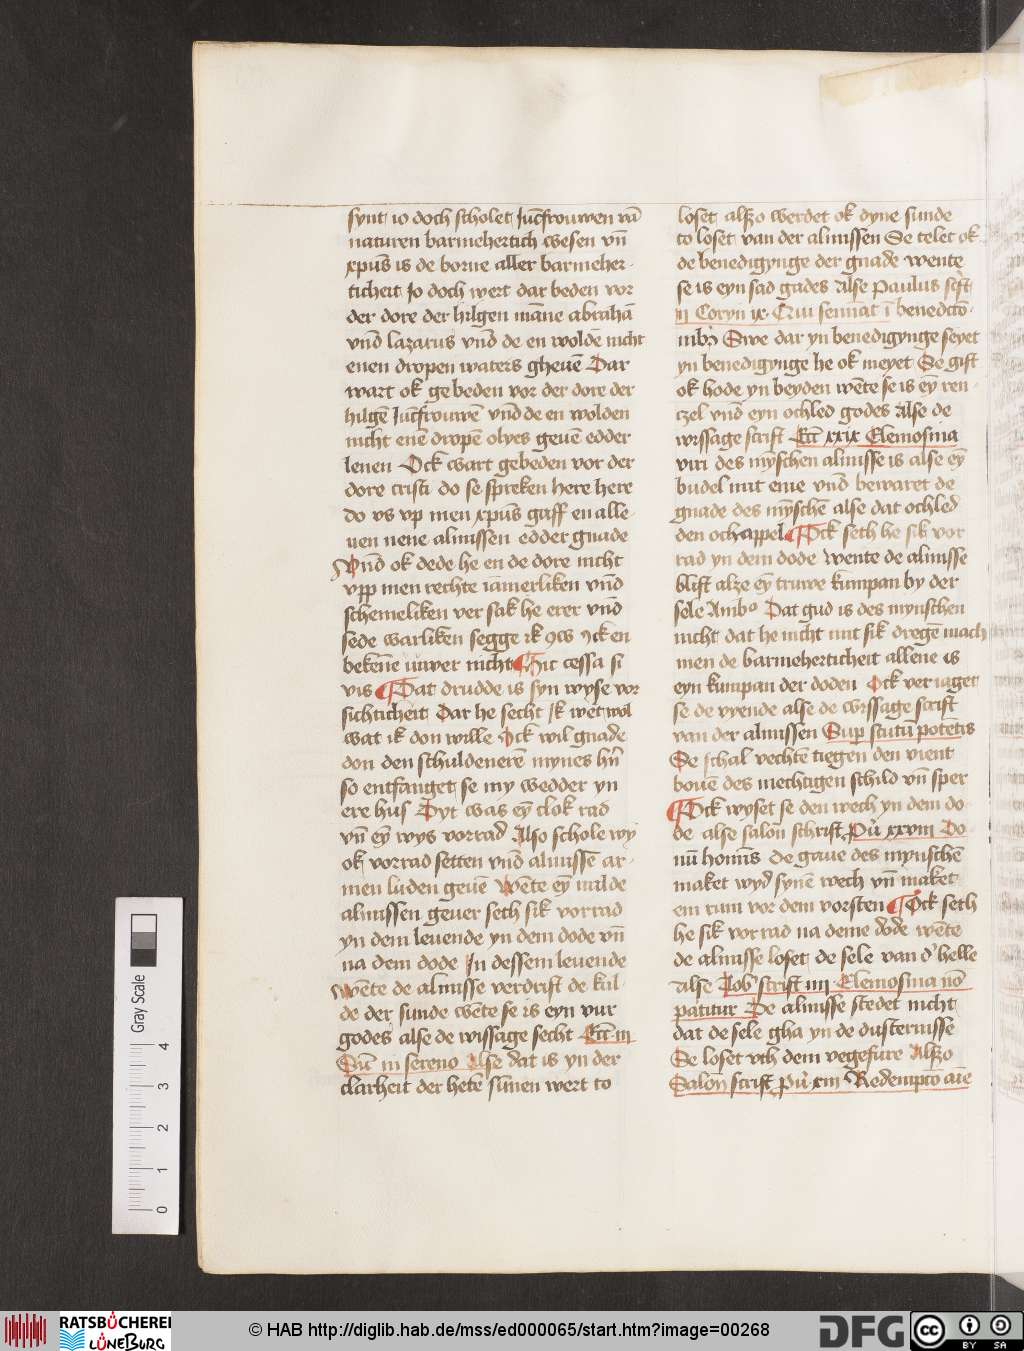 synt io doch scholet Jūcfrouwen vā
naturen barmehertich wesen vn̄
xpūs is de borne aller barmeher-
ticheit Jo doch wert dar beden vor
der dore der hilgen māne abrahā
vnd lazarus vnd de en woldē nicht
enen dropen waters gheuē Dar
wart ok gebeden vor der dore der
hilgē Jūcfrouwē vnd de en wolden
nicht enē dropē olyes geuē edder
lenen Ock wart gebeden vor der
dore cristi do se spreken here here
do vs vp men xpūs gaff en alle-
nen nene almissen edder gnade
Vnd ok dede he en de dore nicht
vpp men rechte iāmerliken vnd
schemeliken ver sak he erer vnd
sede warliken segge ik Jck en
bekēne nicht Hic cessa si
vis Dat drudde is syn wyse vor
sichticheit Dar he secht Jk wet wol
wat ik don wille Jck wil gnade
don den schuldenerē mynes hn̄
so entfanget se my wedder yn
ere hus Dyt was eȳ clok rad
vn̄ eȳ wys vorrad Also schole wȳ
ok vorrad setten vnd almissē ar-
men luden geuē Wēte eȳ milde
almissen geuer seth sik vorrad
yn dem leuende yn dem dode vn̄
na dem dode Jn dessem leuende
Wēte de almisse verdrift de kul-
de der sunde wēte se is eyn vur
godes alse de wissage secht Ecc̄ iij
Sic̄ in sereno Alse dat is yn der
clarheit der hetē sūnen wert to
loset alzo werdet ok dyne sunde
to loset van der almissen Se telet ok
de benedigynge der gnade wente
se is eyn sad gades Alse paulus scft
ij Coryn ix Qui seminat ī benedictō-
nibꝫ Swe dar yn benedigynge seyet
yn benedigynge he ok meyet Se gift
ok hode yn beyden wēte se is eȳ ren-
czel vnd eyn ochled godes alse de
wissage scrift Ecc̄ xxix Elemosina
viri des mȳschen almisse is alse eȳ
budel mit eme vnd bewaret de
gnade des mȳschē alse dat ochled
den ochappel Ock seth he sik vor
rad yn dem dode wente de almisse
blift alze eȳ truwe kumpan by der
sele Ambꝰ Dat gud is des mynschen
nicht dat he nicht mit sik dregē mach
men de barmeherticheit allene is
eyn kumpan der doden Ock ver iaget
se de vyende alse de wissage scrift
van der almissen Sup scutū potētis
Se schal vechtē tiegen den vient
bouē des mechtigen schild vn̄ sper
Ock wyset se den wech yn dem do-
de alse salon schrift xxviii Do
nū homīs De gaue des mynschē
maket wyd synē wech vn̄ maket
em rum vor dem vorsten Ock seth
he sik vorrad na deme dode wēte
de almisse loset de sele van d' helle
Alse Job scrift iiij Elemosina nō
patitur De almisse stedet nicht
dat de sele gha yn de dusternisse
Se loset vth dem vegefure Alzo
Salon scrift xiij Redempto aīe
Gray Scale
4
3
2
1
0
RATSBÜCHEREI
LÜNEBURG
© HAB http://diglib.hab.de/mss/ed000065/start.htm?image=00268
DFG
cc
BY SA